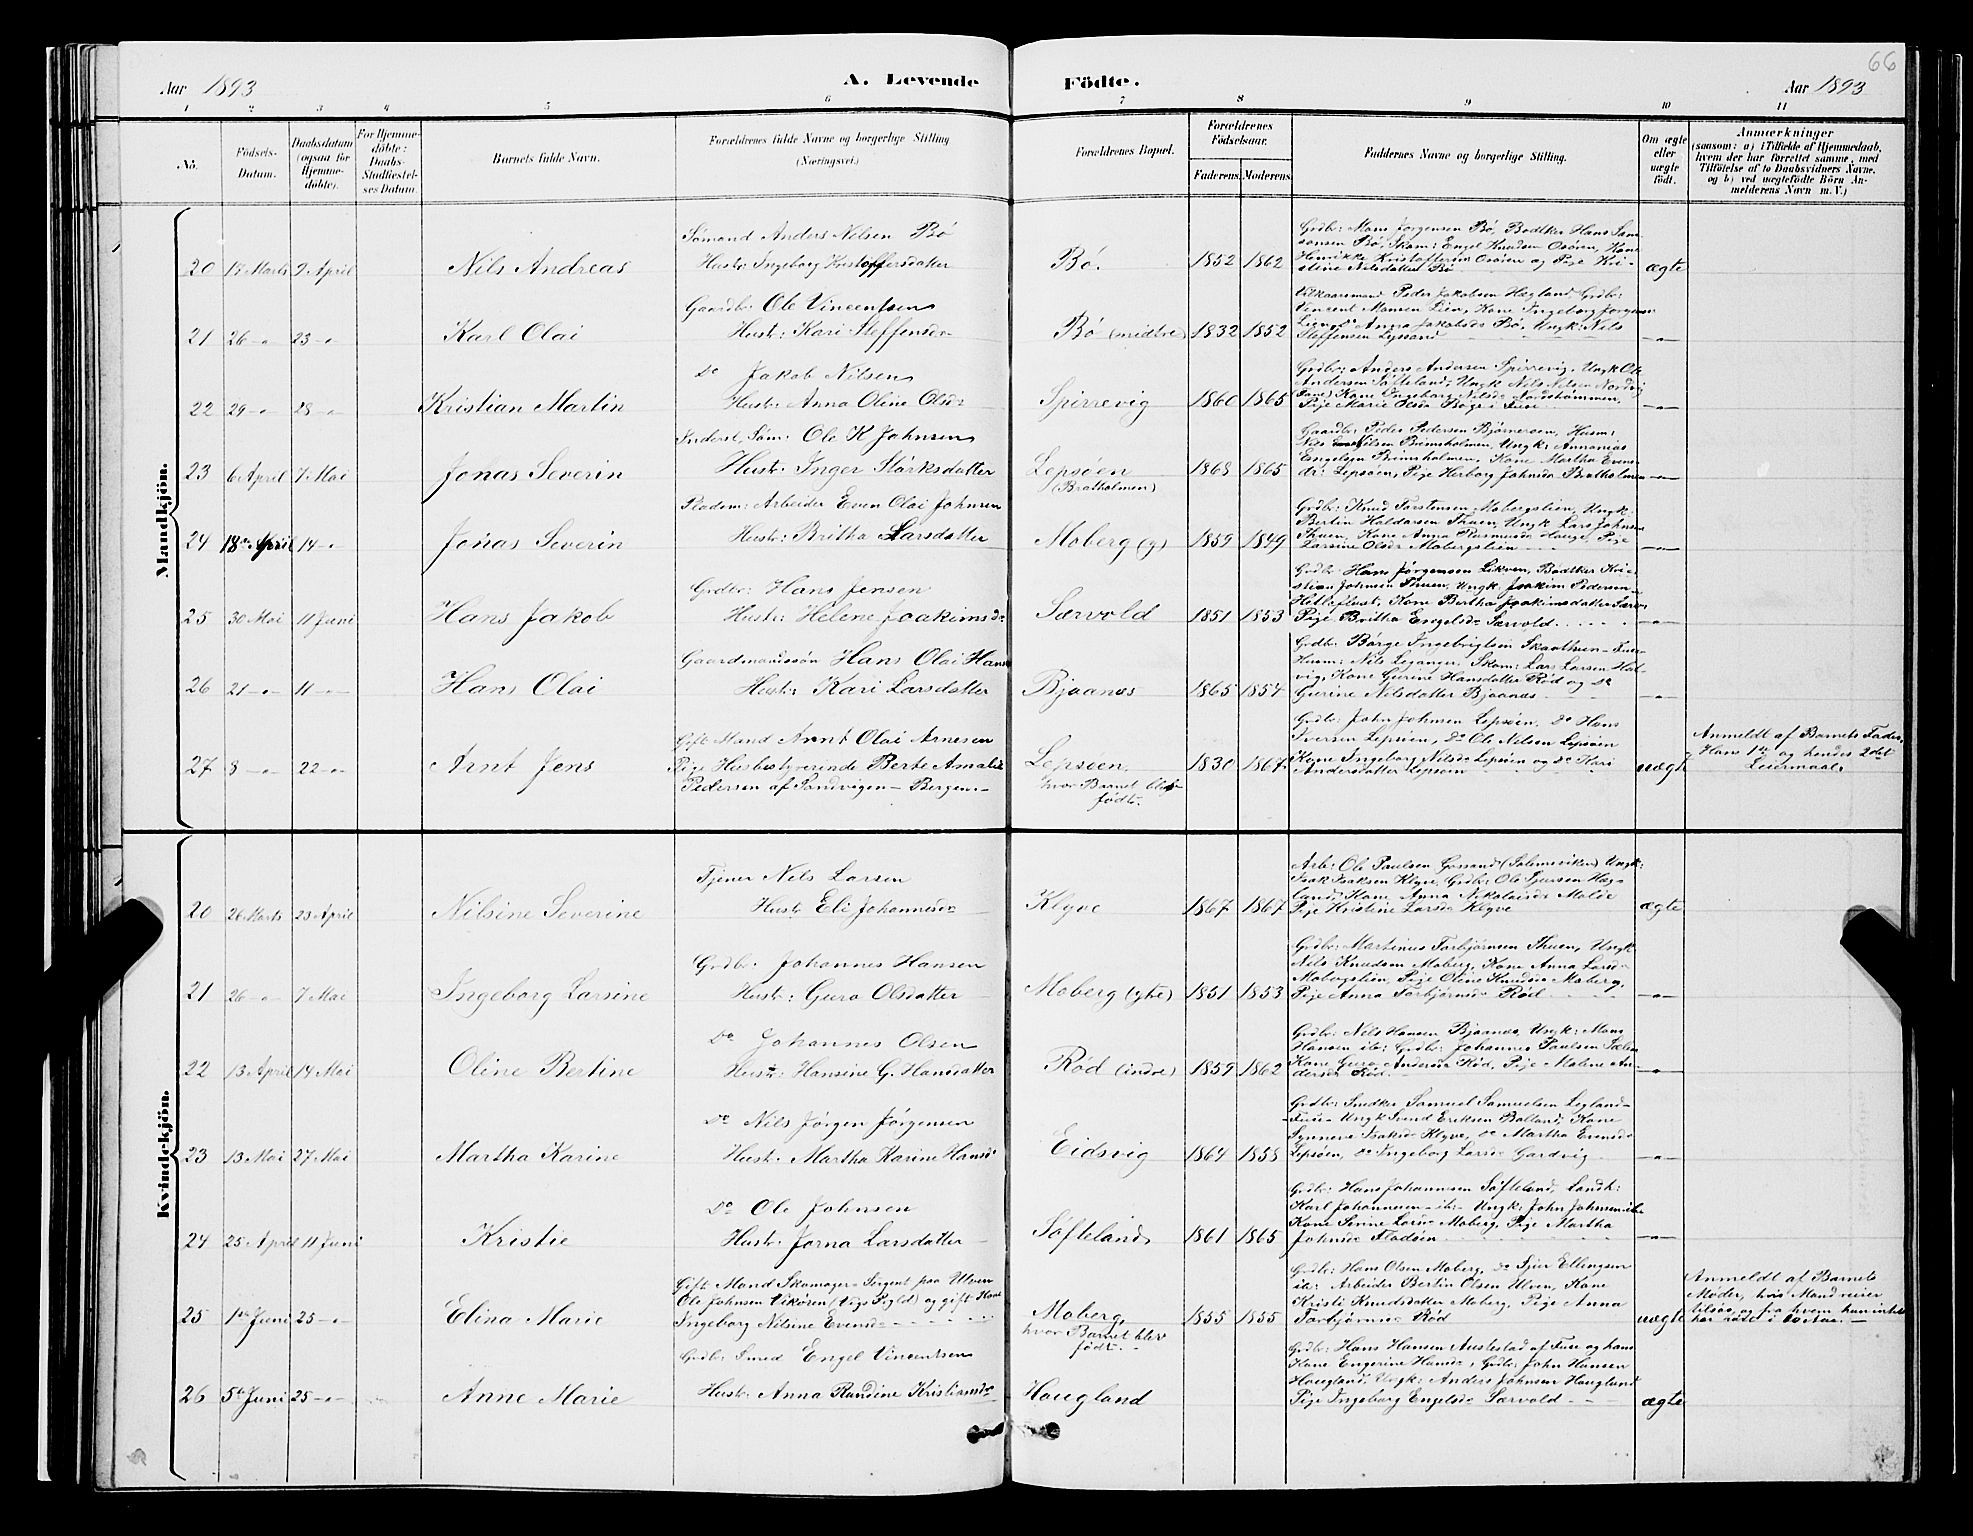 66
Aar 1893
A. Levende
Födte.
Aar 1893
1 2 3 4 5 6 7 8 9 10 11
No.
Födsels-
Datum.
Daabsdatum
(ogsaa for
Hjemme-
döbte).
For Hjemme-
döbte:
Daabs-
Stadfæstel-
ses Datum.
Barnets fulde Navn.
Forældrenes fulde Navne og borgerlige Stilling
(Næringsvei.)
Forældrenes Bopæl.
Forældrenes
Födselsaar.
Faderens. Moderens.
Faddernes Navne og borgerlige Stilling.
Om ægte
eller
uægte
født.
Anmærkninger
(saasom: a) i Tilfælde af Hjemmedaab,
hvem der har forrettet samme, med
Tilföielse af to Daabsvidners Navne.
og b) ved uægtefödte Börn An-
melderens Navn m. V.)
Mandkjön.
20 17 Marts 9 April
Nils Andreas
Sömand Anders Nilsen Bö
Hust: Ingeborg Kristoffersdatter
Bö.
1852 1862
Grdbr: Mons Jørgensen Bö, Bödtker Hans Sam-
sonsen Bö, Skom: Engel Knudsen Osören, Kone
Henrikke Kristoffersen Osören og Pige Kri-
stine Nilsdatter Bö
ægte
21 26 -"- 23 -"-
Karl Olai
Gaardbr: Ole Vincentsen
Hust: Kari Steffensdr
Bö (midtre)
1832 1852
Vilkaarsmand Peder Jakobsen Hægland, Grdbr:
Vincent Monsen Lien, Kone Ingeborg Jørgensen
Lien, do Anna Jakobsdr Bö, Ungk: Nils
Steffensen Lyssand
-"-
22 29 -"- 28 -"-
Kristian Martin
Do Jakob Nilsen
Hust: Anna Oline Olsdr
Spirrevig
1860 1865
Grdbr: Anders Andersen Spirrevig, Ungk Ole
Andersen Söfteland, Ungk Nils Nilsen Nordvig
(Fane) Kone Ingeborg Nilsdr
Pige Marie Olsdr Böge i Fuse
-"-
23 6 April 7 Mai
Jonas Severin
Inderst, Söm: Ole K Johnsen
Hust: Inger Störksdatter
Lepsöen
(Bratholmen)
1868 1865
Gaardbr: Peder Pedersen Björneroen, Husm:
Nils Nilsen Brimsholmen, Ungk: Annanias
Engelsen Brimsholmen, Kone Martha Evens-
dr: Lepsöen, Pige Herborg Johnsdr Bratholmen
-"-
24 18de April 14 -"-
Jonas Severin
Pladsm: Arbeider Even Olai Johnsen
Hust: Britha Larsdatter
Moberg (y)
1859 1849
Grdbr: Knud Torstensen Mobergslien, Ungk
Bertin Haldorsen Thuen, Ungk Lars Johnsen
Thuen, Kone Anna Rasmusdr Hauge, Pige
Larsine Olsdr Mobergslien
-"-
25 30 Mai 11 Juni
Hans Jakob
Grdbr: Hans Jensen
Hust: Helene Joakimsdr
Særvold
1851 1853
Grdbr: Hans Jørgensen Lekven, Bödtker Kri-
stian Johnsen Thuen, Ungk Joakim Pedersen
Hetleflaat, Kone Bertha Joakimsdatter Særv
Pige Britha Engelsdr Særvold.
-"-
26 21 -"- 11 -"-
Hans Olai
Gaardmandssön Hans Olai Hansen
Hust: Kari Larsdatter
Bjaanæs
1865 1854
Grdbr: Börge Ingebrigtsen Skaathun - Fuse
Husm: Nils Leganger, Skom: Lars Larsen Hat-
vig, Kone Gurine Hansdatter Röd og do
Gurine Nilsdatter Bjaanæs
-"-
27 8 -"- 22 -"-
Arnt Jens
Gift Mand Arnt Olai Arnesen
Pige Husbestyrerinde Berte Amalie
Pedersen af Sandvigen - Bergen.-
Lepsöen.
hvor Barnet blev
födt.
1830 1867
Grdbr: John Johnsen Lepsöen, do Hans
Iversen Lepsöen, do Ole Nilsen Lepsöen
Kone Ingeborg Nilsdr Lepsöen og do Kari
Andersdatter Lepsöen
uægte
Anmeldt af Barnets Fader,
Hans 1ste og hendes 2det
Leiermaal.
Kvindekjön.
20 26 Marts 23 April
Nilsine Severine
Tjener Nils Larsen
Hust: Eli Johannesdr
Klyve
1867 1867
Arb: Ole Paulsen Gossand (Solemsviken) Ungk:
Isak Isaksen Klyve, Grdbr: Ole Sjursen Hæg-
land, Kone Anna Nikolaisdr Malde
Pige Kristine Larsdr Klyve
ægte
21 26 -"- 7 Mai
Ingeborg Larsine
Grdbr. Johannes Hansen
Hust: Guro Olsdatter
Moberg (ytre)
1851 1853
Grdbr: Martinus Torbjörnsen Thuen, Ungk
Nils Knudsen Moberg, Kone Anna Larsdr
Mobergslien, Pige Oline Knudsdr Moberg,
Pige Anna Torbjörnsdr Röd
-"-
22 13 April 14 Mai
Oline Bertine
Do Johannes Olsen
Hust: Hansine G. Hansdatter
Röd (indre)
1859 1862
Grdbr: Nils Hansen Bjaanæs, Ungk: Mons
Hansen ib: Grdbr: Johannes Paulsen Sælen
Kone Guro Andersdr Röd, Pige Malene An-
dersdr Röd.
-"-
23 13 Mai 27 Mai
Martha Karine
Do Nils Jörgen Jörgensen
Hust: Martha Karine Hansdr
Eidsvig
1864 1858
Grdbr: Snedker Samuel Samuelsen Legland-
Fuse - Ungk Svend Eriksen Balland, Kone
Synneve Isaksdr Klyve, do Martha Evensdr
Lepsöen, do Ingeborg Larsdr Gardvig
-"-
24 25 April 11 Juni
Kristie
Do Ole Johnsen
Hust: Jorna Larsdatter
Söfteland
1861 1865
Grdbr: Hans Johannesen Söfteland, Landh:
Karl Johannesen - ib: - Ungk: John Johnsen ibr
Kone Serine Larsdr Moberg, Pige Martha
Johnsdr Fladöen
-"-
25 1ste Juni 25 -"-
Elina Marie
Gift Mand Skomager - Sergent paa Ulven
Ole Johnsen Vikören (Vigs Pgld) og gift Kone
Ingeborg Nilsine Evensdr
Moberg,
hvor Barnet blev
födt.
1855 1855
Grdbr: Hans Olsen Moberg, do Sjur Ellingsen
ib: Arbeider Bertin Olsen Ulven, Kone
Kristi Knudsdatter Moberg, Pige Anna
Torbjörnsdr Röd
uægte
Anmeldt af Barnets
Moder, hvis Mand reiser
tilsöes og fra hvem hun intet
har
26 5te Juni 25 -"-
Anne Marie
Grdbr: Smed Engel Vincentsen
Hust: Anna Rundine Kristiansdr
Haugland
Grdbr: Hans Hansen Austestad af Fuse og hans
Kone Engerine Hansdr, Grdbr: John Hansen
Haugland, Ungk: Anders Johnsen Haugland
Pige Ingeborg Engelsdr Særvold
ægte